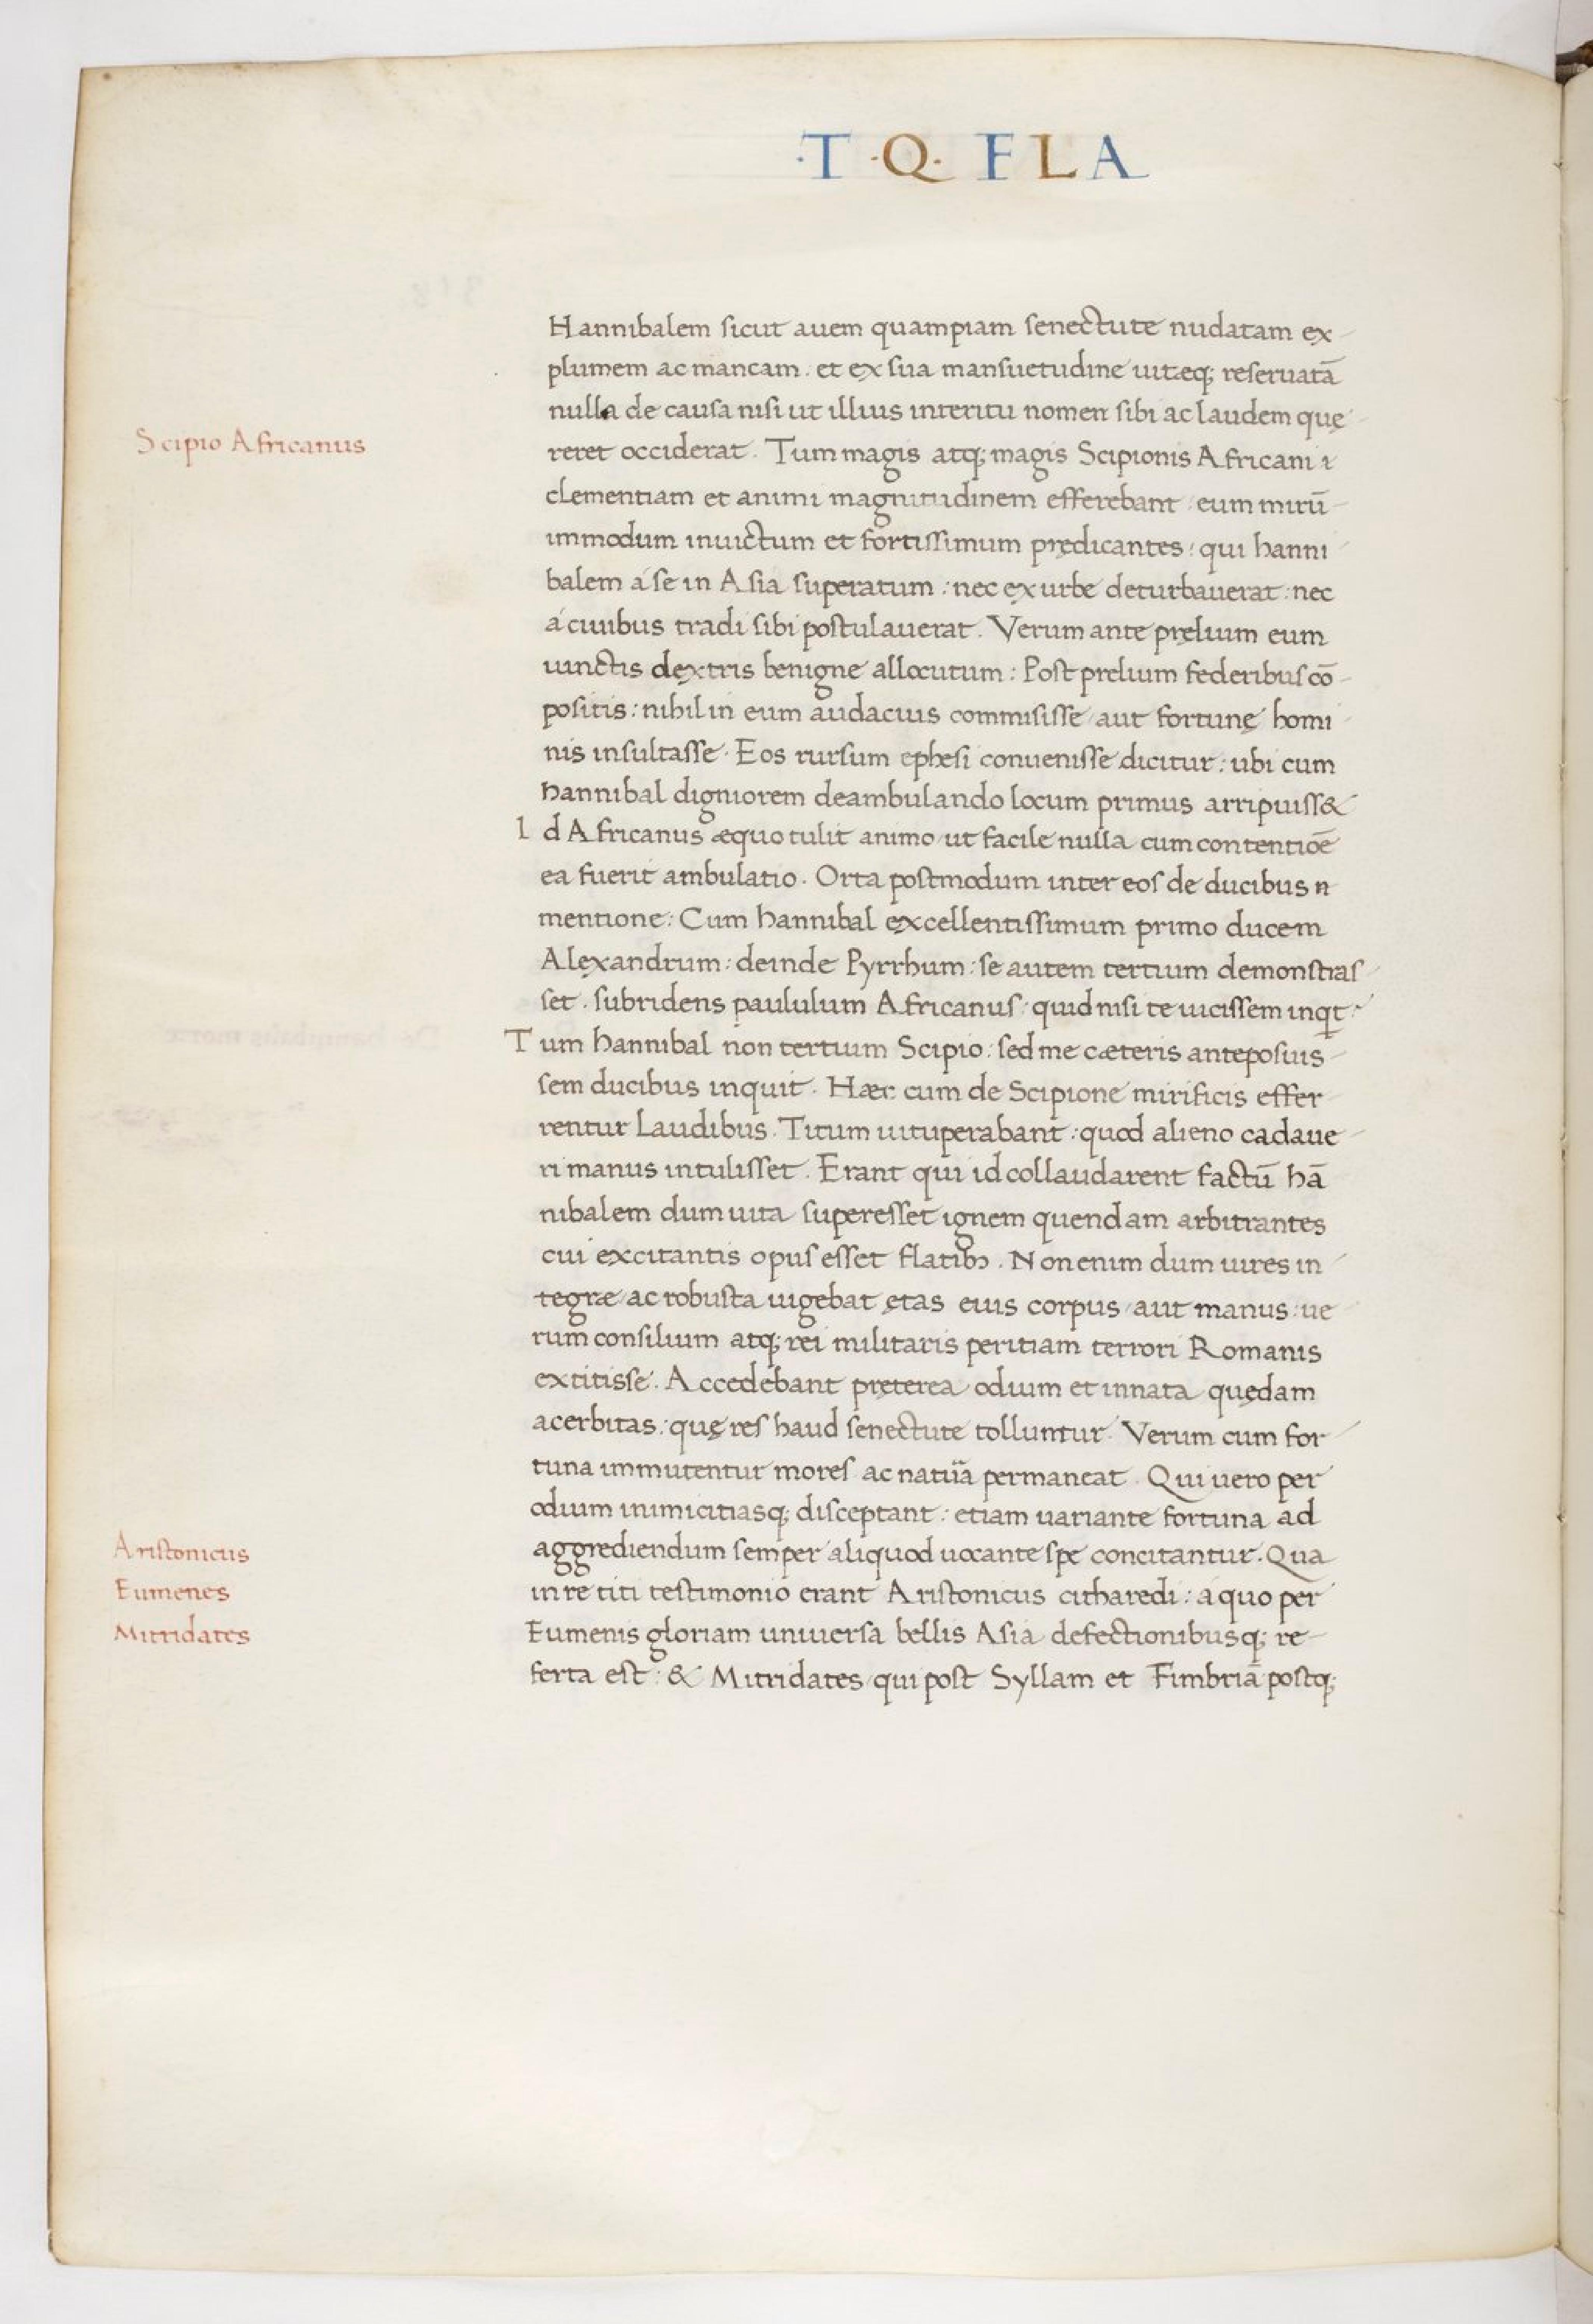 ·T·Q· FLA
Hannibalem sicut auem quampiam senectute nudatam ex
plumem ac mancam. et ex sua mansuetudine uitæq; reseruatā
nulla de causa nisi ut illius interitu nomen sibi ac laudem quę
Scipio Africanus
reret occiderat. Tum magis atq; magis Scipionis Africani
clementiam et animi magnitudinem efferebant: eum mirū
immodum inuictum et fortissimum prędicantes: qui hanni
balem á se in Asia superatum: nec ex urbe deturbauerat: nec
á ciuibus tradi sibi postulauerat. Verum ante pręlium eum
uinctis dextris benigne allocutum: Post prelium federibus cō
positis: nihil in eum audacius commisisse/ aut fortunę homi
nis insultasse. Eos rursum ephesi conuenisse dicitur: ubi cum
hannibal digniorem deambulando locum primus arripuiss&
Id Africanus æquo tulit animo/ ut facile nulla cum contentiōe
ea fuerit ambulatio. Orta postmodum inter eos de ducibus
mentione: Cum hannibal excellentissimum primo ducem
Alexandrum: deinde Pyrrhum: se autem tertium demonstras
set. subridens paululum Africanus: quid nisi te uicissem inqt:
Tum hannibal non tertium Scipio: sed me cæteris anteposuis
sem ducibus inquit. Hæc cum de Scipione mirificis effer
rentur Laudibus. Titum uituperabant: quod alieno cadaue
ri manus intulisset. Erant qui id collaudarent factū hā
nibalem dum uita superesset ignem quendam arbitrantes
cui excitantis opus esset flatibꝫ. Non enim dum uires in
tegræ/ ac robusta uigebat ętas eius corpus/ aut manus: ue
rum consilium atq; rei militaris peritiam terrori Romanis
extitisse. Accedebant pręterea odium et innata quędam
acerbitas: quę res haud senectute tolluntur. Verum cum for
tuna immutentur mores ac natura permaneat. Qui uero per
odium inimicitiasq; disceptant: etiam uariante fortuna ad
Aristonicus
aggrediendum semper aliquod uocante spe concitantur. Qua
Eumenes
in re titi testimonio erant Aristonicus citharedi: á quo per
Mitridates
Eumenis gloriam uniuersa bellis Asia defectionibusq; re
ferta est: & Mitridates/ qui post Syllam et Fimbriā postq;